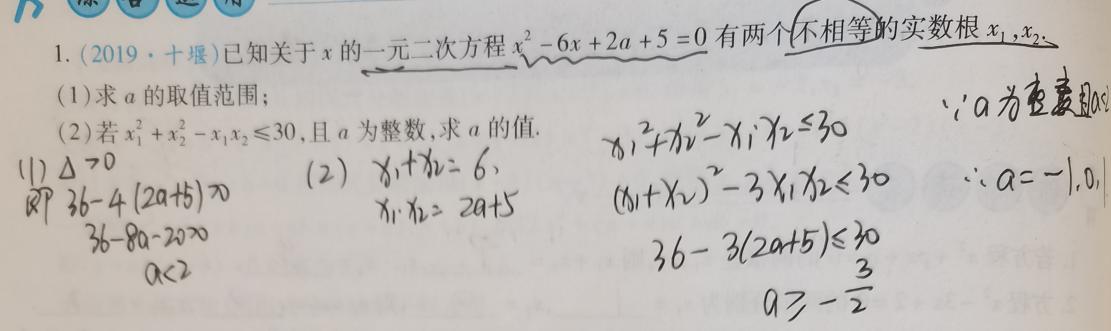 综合运用
1.(2019·十堰)已知关于x的一元二次方程x²-6x+2a+5=0有两个不相等的实数根x₁,x₂.
(1)求a的取值范围;
(2)若x₁²+x₂²-x₁x₂≤30,且a为整数,求a的值.
(1) Δ>0
即 36-4(2a+5)>0
36-8a-20>0
a<2
(2) x₁+x₂=6,
x₁·x₂=2a+5
x₁²+x₂²-x₁x₂≤30
(x₁+x₂)²-3x₁x₂≤30
36-3(2a+5)≤30
a≥-3/2
∵a为整数且a<2
∴a=-1,0,1